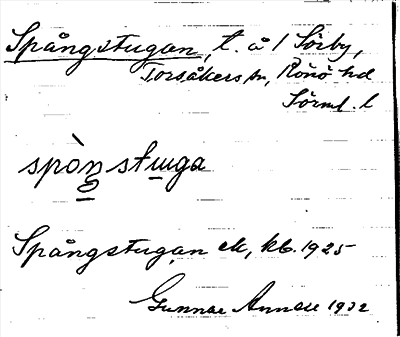 Spångstugan, t. å 1 Sörby,
Torsåkers sn, Rönö hd
Sörml. l
spòŋstɯga
Spångstugan ek, kb. 1925
Gunnar 1932